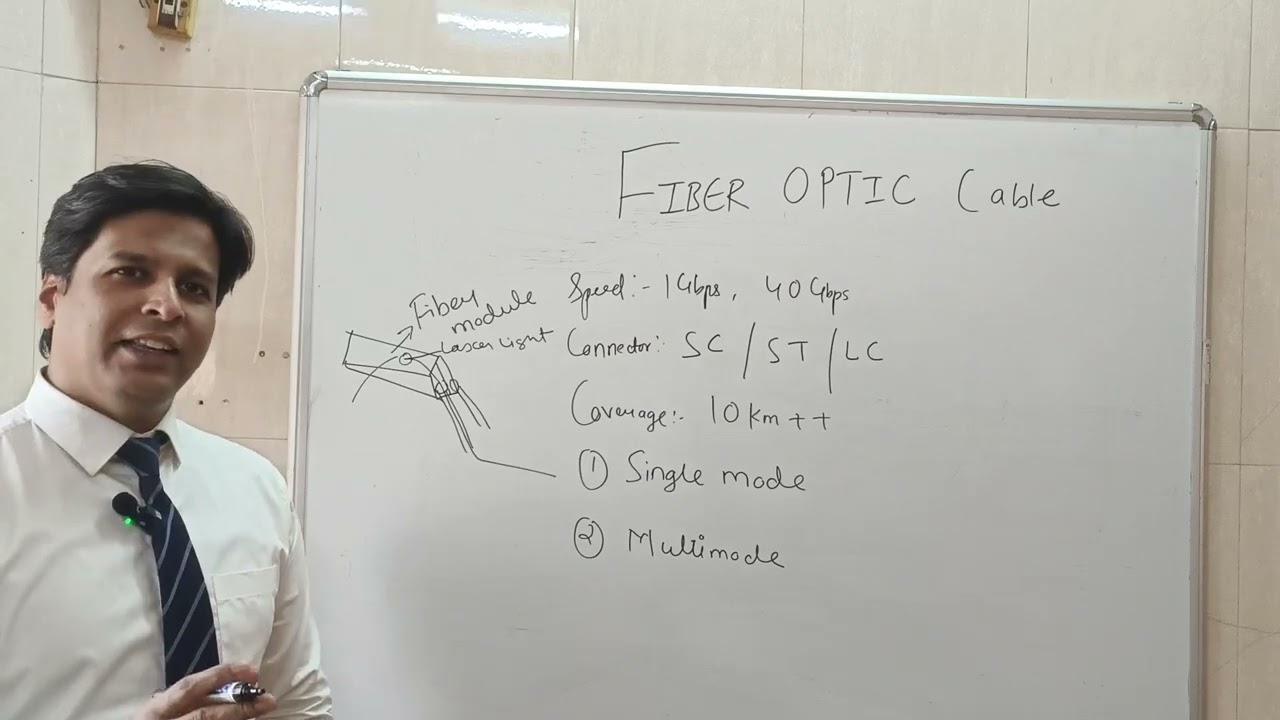 FIBER OPTIC Cable
Speed:- 1Gbps, 40Gbps
Fiber
module
Laser Light
Connector:- SC / ST / LC
Coverage:- 10km++
① Single mode
② Multimode